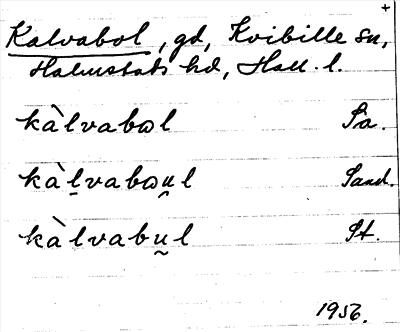 +
Kalvabol, gd, Kvibille sn,
Halmstads hd, Hall. l.
kàlvabɷl Så.
kàl̰vabɷṵl Sand.
kàlvabṵl St.
1956.